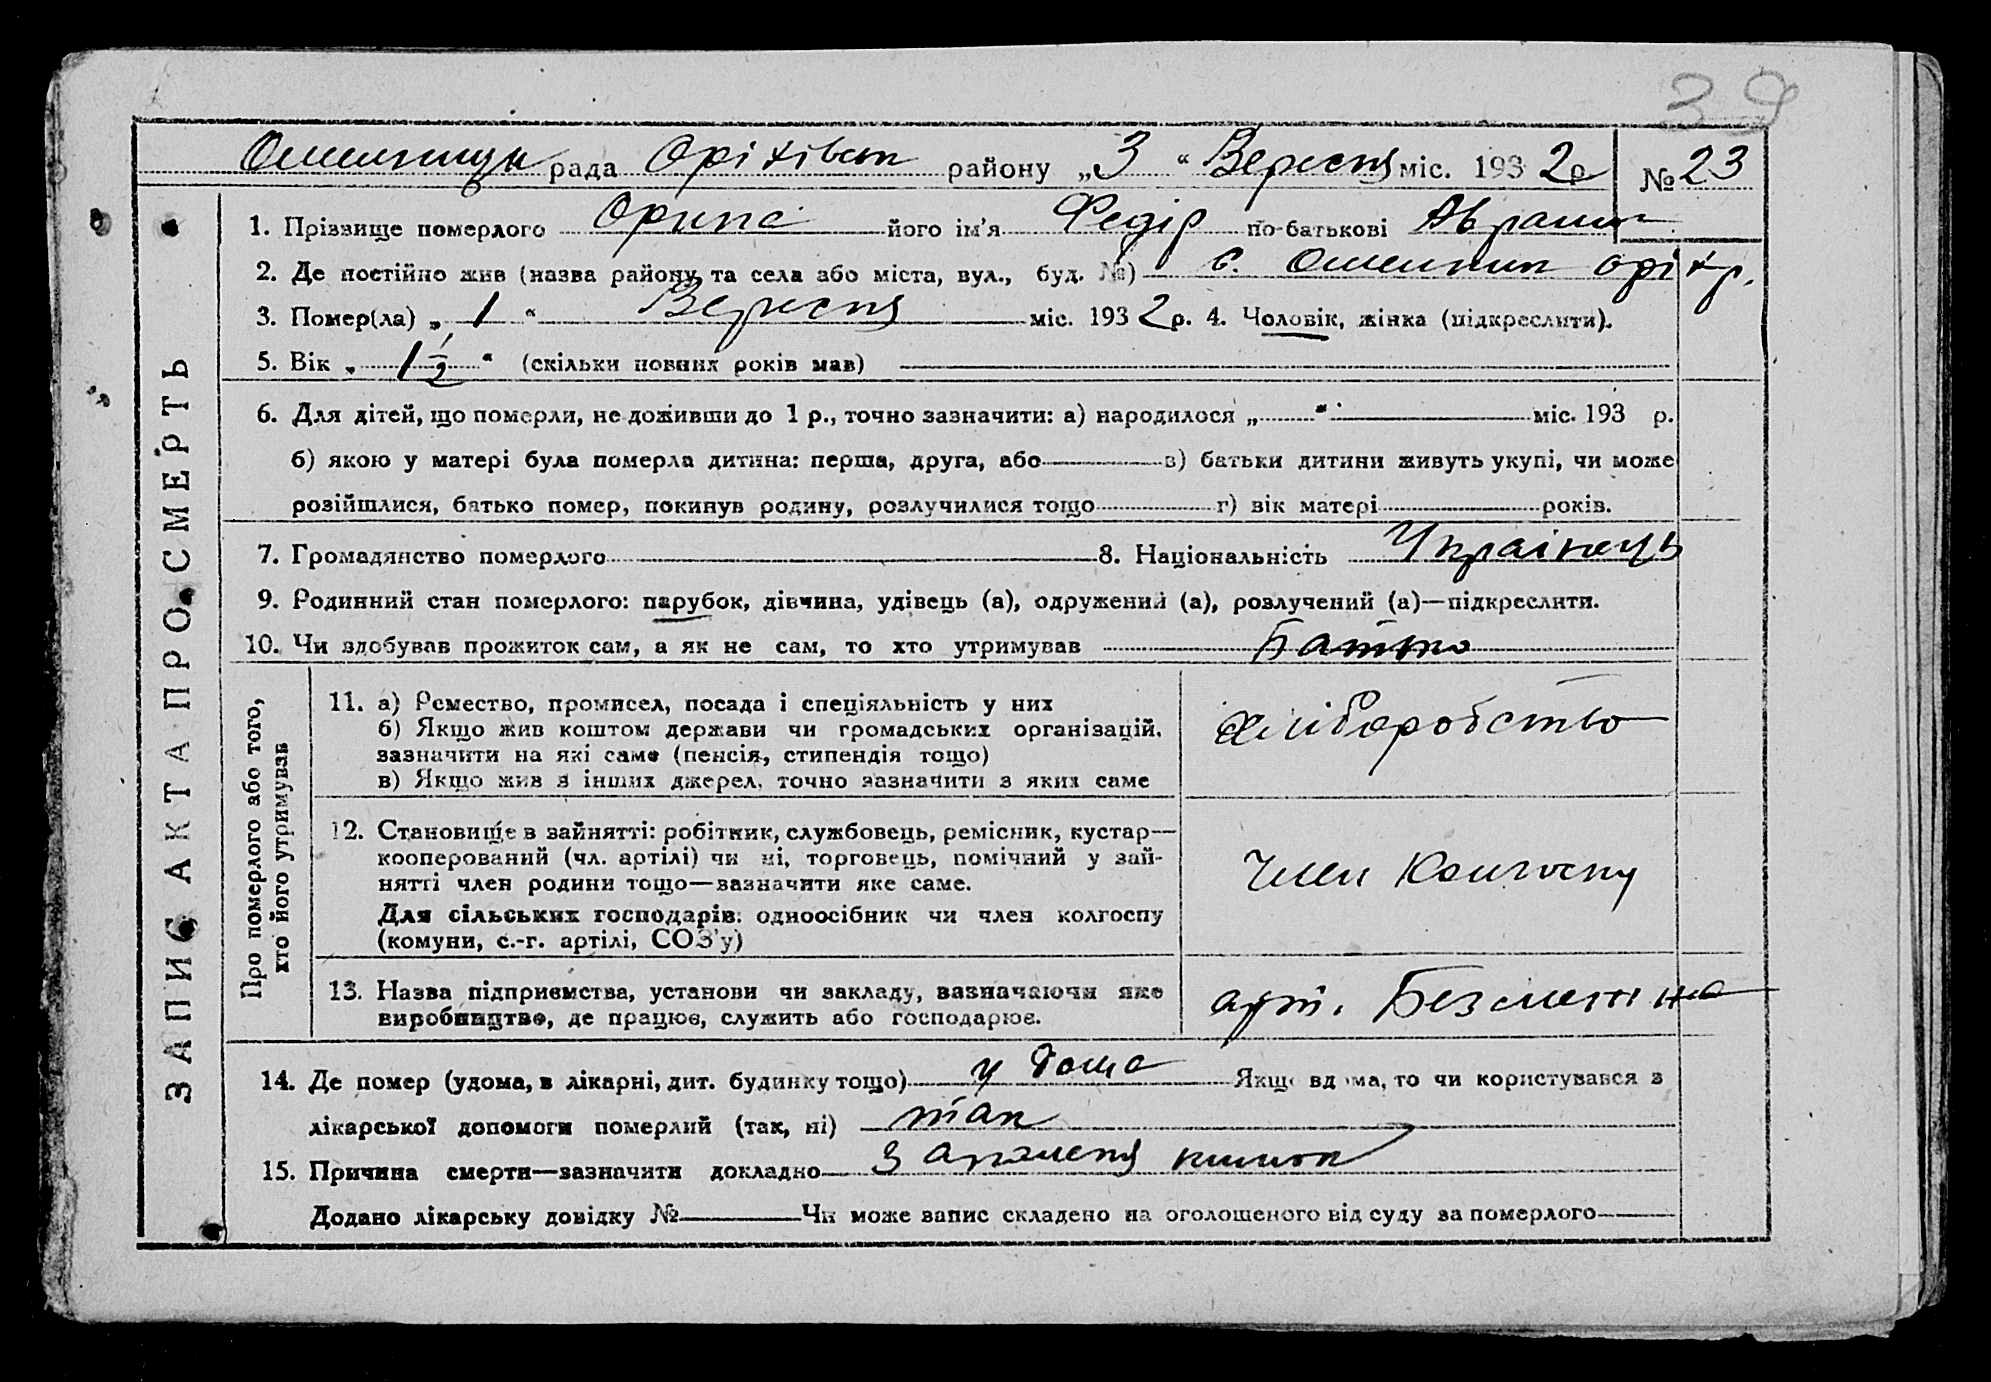 39
Омельницьк рада Оріхівськ району „3“ Вересня міс. 1932р № 23
ЗАПИС АКТА ПРО СМЕРТЬ
1. Прізвище померлого його ім'я Федір по-батькові Аврамов
2. Де постійно жив (назва району та села або міста, вул., буд. №) с. Омельник Оріх р.
3. Помер(ла) „1“ Вересня міс. 1932р. 4. Чоловік, жінка (підкреслити).
5. Вік „1 1/2“ (скільки повних років мав)
6. Для дітей, що померли, не доживши до 1 р., точно зазначити: а) народилося „ “ міс. 193 р.
б) якою у матері була померла дитина: перша, друга, або в) батьки дитини живуть укупі, чи може
розійшлися, батько помер, покинув родину, розлучилися тощо г) вік матері років.
7. Громадянство померлого 8. Національність Українець
9. Родинний стан померлого: парубок, дівчина, удівець (а), одружений (а), розлучений (а)—підкреслити.
10. Чи здобував прожиток сам, а як не сам, то хто утримував Батько
Про померлого або того,
хто його утримував
11. а) Ремество, промисел, посада і спеціяльність у них
б) Якщо жив коштом держави чи громадських організацій,
зазначити на які саме (пенсія, стипендія тощо)
в) Якщо жив з інших джерел, точно зазначити з яких саме
хліборобство
12. Становище в зайнятті: робітник, службовець, ремісник, кустар—
кооперований (чл. артілі) чи ні, торговець, помічний у зай-
нятті член родини тощо—зазначити яке саме.
Для сільських господарів: одноосібник чи член колгоспу
(комуни, с.-г. артілі, СОЗ'у)
Член Колгоспу
13. Назва підприємства, установи чи закладу, зазначаючи яке
виробництво, де працює, служить або господарює.
арт.
14. Де помер (удома, в лікарні, дит. будинку тощо) у дома Якщо вдома, то чи користувався з
лікарської допомоги померлий (так, ні) так
15. Причина смерти—зазначити докладно кишок
Додано лікарську довідку № Чи може запис складено на оголошеного від суду за померлого